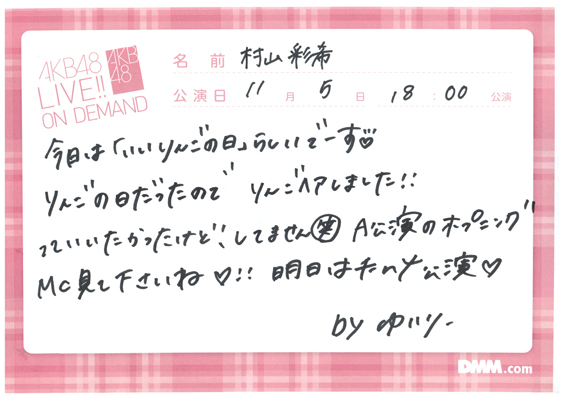 AKB48
LIVE!!
ON DEMAND
AKB
48
名前 村山彩希
公演日 11月5日 18:00公演
今日は「いいりんごの日」らしいでーす♡
りんごの日だったので りんごヘアしました!!
っていいたかったけど、してません㊗笑 A公演のオプニング
MC見て下さいね♡!! 明日はチームY公演♡
by ゆいりー
DMM.com